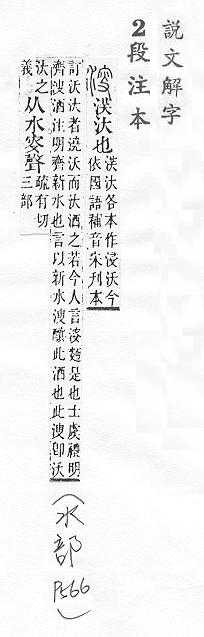 説文解字
2段注本
溲 沃汏也 沃汏各本作浸沃今
依國語補音宋刊本
訂沃汏者澆沃而汏洒之若今人言溲麪是也士虞禮明
齊溲酒注明齊新水也言以新水溲釀此酒也此溲卽沃
汏之
義 从水叜聲 疏有切
三部
(水部 P566)